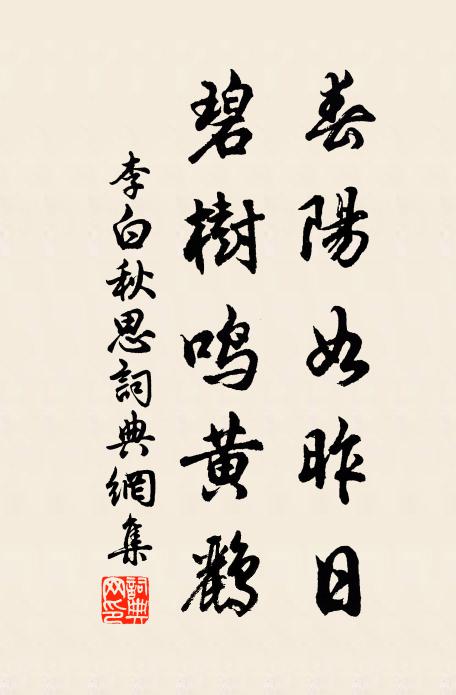 春陽如昨日
碧樹鳴黄鸝
李白秋思詞典網集
詞典网印